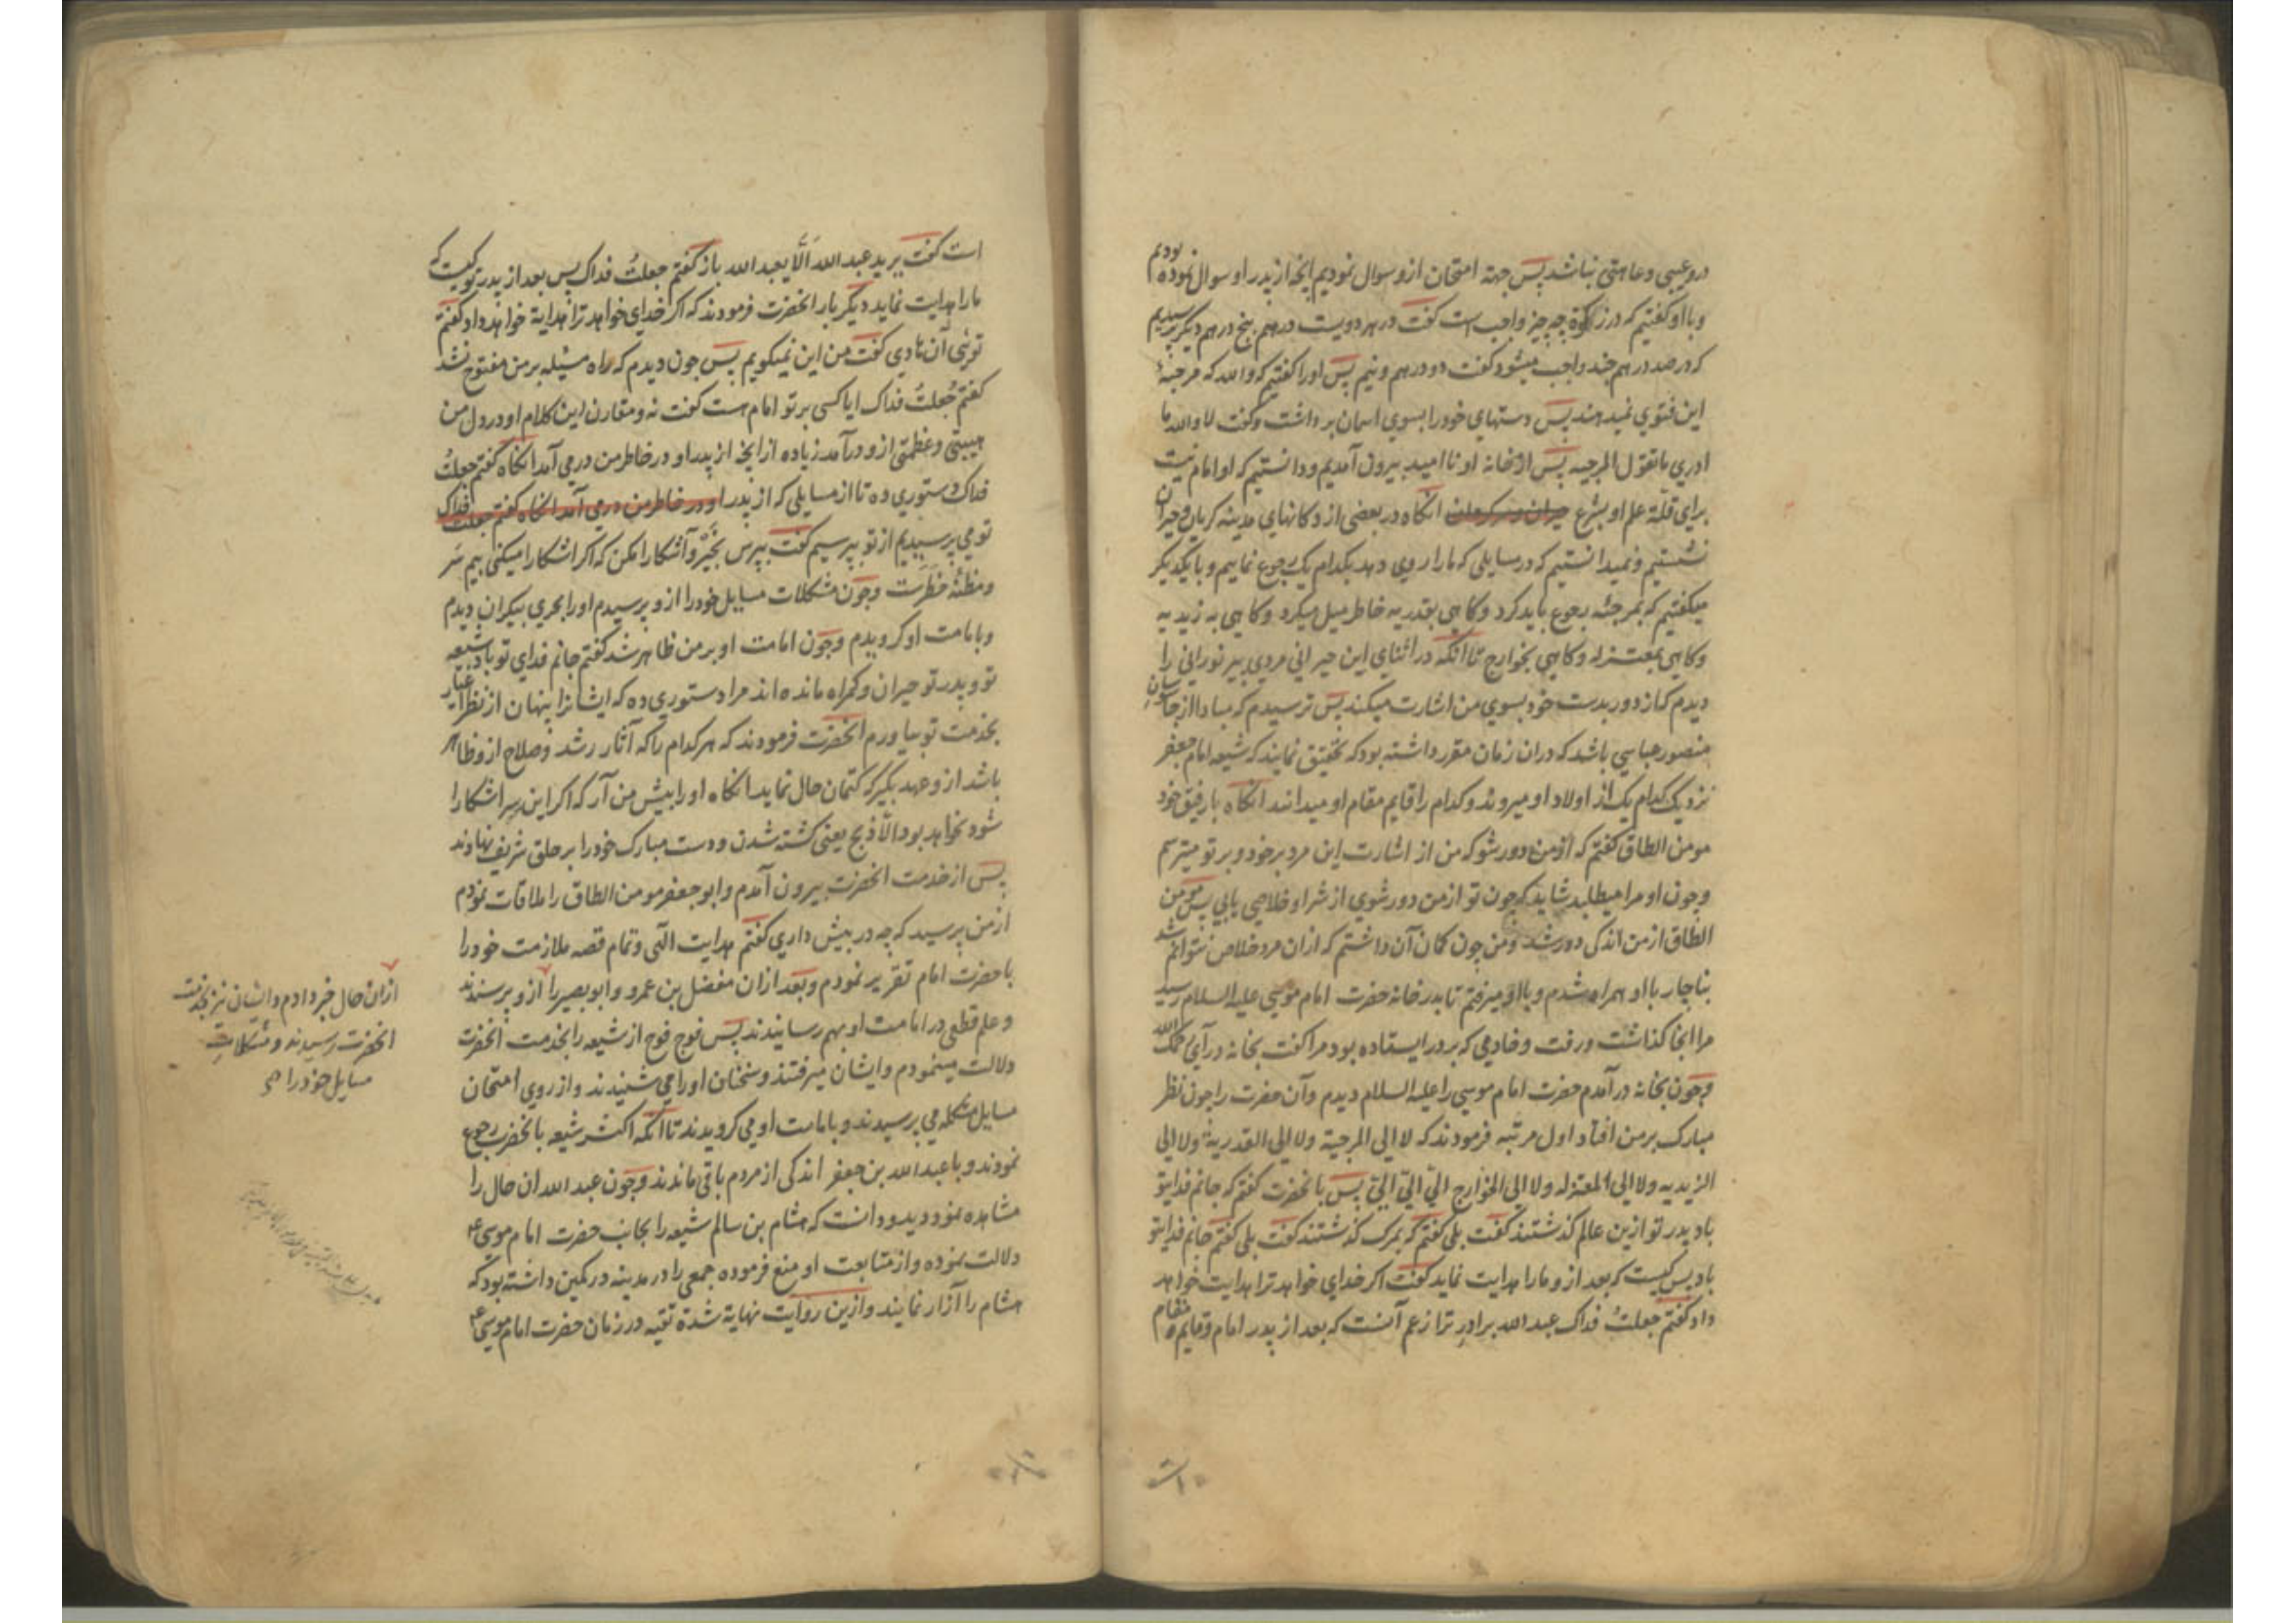 درو عیبی و عاهتی نباشد پس جهة امتحان ازو سوال نمودیم آنچه از پدر او سوال نموده بودیم
و با او کفتیم که در زکوة چه چیز واجب است کفت در هر دویست درهم پنج درهم دیکر پرسیدیم
که در صد درهم چند واجب میشود کفت دو درهم و نیم پس او را کفتیم که والله که مرجیهٔ
این فتوی نمیدهند پس دستهای خود را بسوی اسمان برداشت و کفت لا والله ما
ادری ما تقول المرجیه پس از خانه او نا امید بیرون آمدیم و دانستیم که او امام نیست
برای قلّة علم او بشرع حیران و سرکردان انکاه در بعضی از دکانهای مدینه کریان و حیران
نشستیم و نمیدانستیم که در مسایلی که ما را روی دهد بکدام یک رجوع نماییم و با یکدیکر
میکفتیم که بمرجئه رجوع باید کرد و کاهی بقدریه خاطر میل میکرد و کاهی به زیدیه
و کاهی بمعتزله و کاهی بخوارج تا انکه در اثنای این حیرانی مردی پیر نورانی را
دیدم که از دور بدست خود بسوی من اشارت میکند پس ترسیدم که مبادا از جاسوسان
منصور عباسی باشد که دران زمان مقرر داشته بود که تحقیق نمایند که شیعه امام جعفر
نزدیک کدام یک از اولاد او میروند و کدام را قایم مقام او میدانند انکاه با رفیق خود
مومن الطاق کفتم که از من دور شو که من از اشارت این مرد بر خود و بر تو میترسم
و چون او مرا میطلبد شاید که چون تو از من دور شوی از شر او خلاصی یابی پس مومن
الطاق از من اندکی دور شد و من چون کمان آن داشتم که ازان مرد خلاص نتوانم شد
بناچار با او همراه شدم و با او میرفتم تا بدر خانه حضرت امام موسی علیه السلام رسید
مرا انجا کذاشت و رفت و خادمی که بر در ایستاده بود مرا کفت بخانه درآی رحمک الله
و چون بخانه در آمدم حضرت امام موسی را علیه السلام دیدم و آن حضرت را چون نظر
مبارک بر من افتاد اول مرتبه فرمودند که لا الی المرجیة ولا الی القدریة ولا الی
الزیدیه ولا الی المعتزله ولا الی الخوارج الیّ الیّ الیّ پس با نحضرت کفتم که جانم فدای تو
باد پدر تو ازین عالم کذشتند کفت بلی کفتم که بمرک کذشتند کفت بلی کفتم جانم فدای تو
باد پس کیست که بعد ازو ما را هدایت نماید کفت اکر خدای خواهد ترا هدایت خواهد
داد کفتم جعلتُ فداک عبدالله برادر ترا زعم آنست که بعد از پدر امام و قایم مقام
است کفت یرید عبدالله اَلّا یعبد الله باز کفتم جعلتُ فداک پس بعد از پدر تو کیست که
ما را هدایت نماید دیکر بار انحضرت فرمودند که اکر خدای خواهد ترا هدایة خواهد داد کفتم
توئی آن هادی کفت من این نمیکویم پس چون دیدم که راه مسئله بر من مفتوح نشد
کفتم جُعلتُ فداک ایا کسی بر تو امام هست کفت نه و مقارن این کلام او در دل من
هیبتی و عظمتی ازو در آمد زیاده از انچه از پدر او در خاطر من در می آمد انکاه کفتم جعلتُ
فداک دستوری ده تا از مسایلی که از پدر او در خاطر من در می آمد انکاه کفتم جعلت فداک
تو می پرسیدیم از تو بپرسیم کفت بپرس بخیر و آشکارا مکن که اکر اشکارا میکنی بیم سر
و مظنّه خطرست و چون مشکلات مسایل خود را ازو پرسیدم او را بحری بیکران دیدم
و بامامت او کرویدم و چون امامت او بر من ظاهر شد کفتم جانم فدای تو باد شیعه
تو و پدر تو حیران و کمراه مانده اند مرا دستوری ده که ایشانرا پنهان از نظر اغیار
بخدمت تو بیاورم انحضرت فرمودند که هر کدام را که آثار رشد و صلاح ازو ظاهر
باشد ازو عهد بکیر که کتمان حال نماید انکاه او را پیش من آر که اکر این سر اشکارا
شود نخواهد بود الّا ذبح یعنی کشته شدن و دست مبارک خود را بر حلق شریف نهادند
پس از خدمت انحضرت بیرون آمدم و ابو جعفر مومن الطاق را ملاقات نمودم
از من پرسید که چه در پیش داری کفتم هدایت الهی و تمام قصه ملازمت خود را
با حضرت امام تقریر نمودم و بعد ازان مفضل بن عمرو و ابو بصیر را ازو پرسیدند
و علم قطعی در امامت او بهم رسانیدند پس فوج فوج از شیعه را بخدمت انحضرت
دلالت مینمودم و ایشان میرفتند و سخنان او را می شنیدند و از روی امتحان
مسایل مشکله می پرسیدند و بامامت او می کرویدند تا انکه اکثر شیعه بانحضرت رجوع
نمودند و با عبدالله بن جعفر اندکی از مردم باقی ماندند و چون عبدالله ان حال را
مشاهده نمود و دید و دانست که هشام بن سالم شیعه را بجانب حضرت امام موسی ع
دلالت نموده و از متابعت او منع فرموده جمعی را در مدینه در کمین داشته بود که
هشام را آزار نمایند و ازین روایت نهایة شدة تقیه در زمان حضرت امام موسی ع
ازان حال خبر دادم و ایشان نیز بخدمت
انحضرت رسیدند و مشکلات
مسایل خود را صح